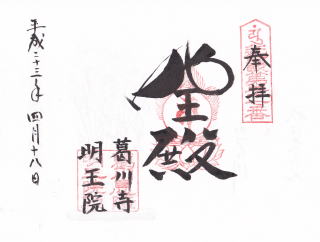 奉拝
殿
葛川寺
明王院
平成二十三年 四月十八日